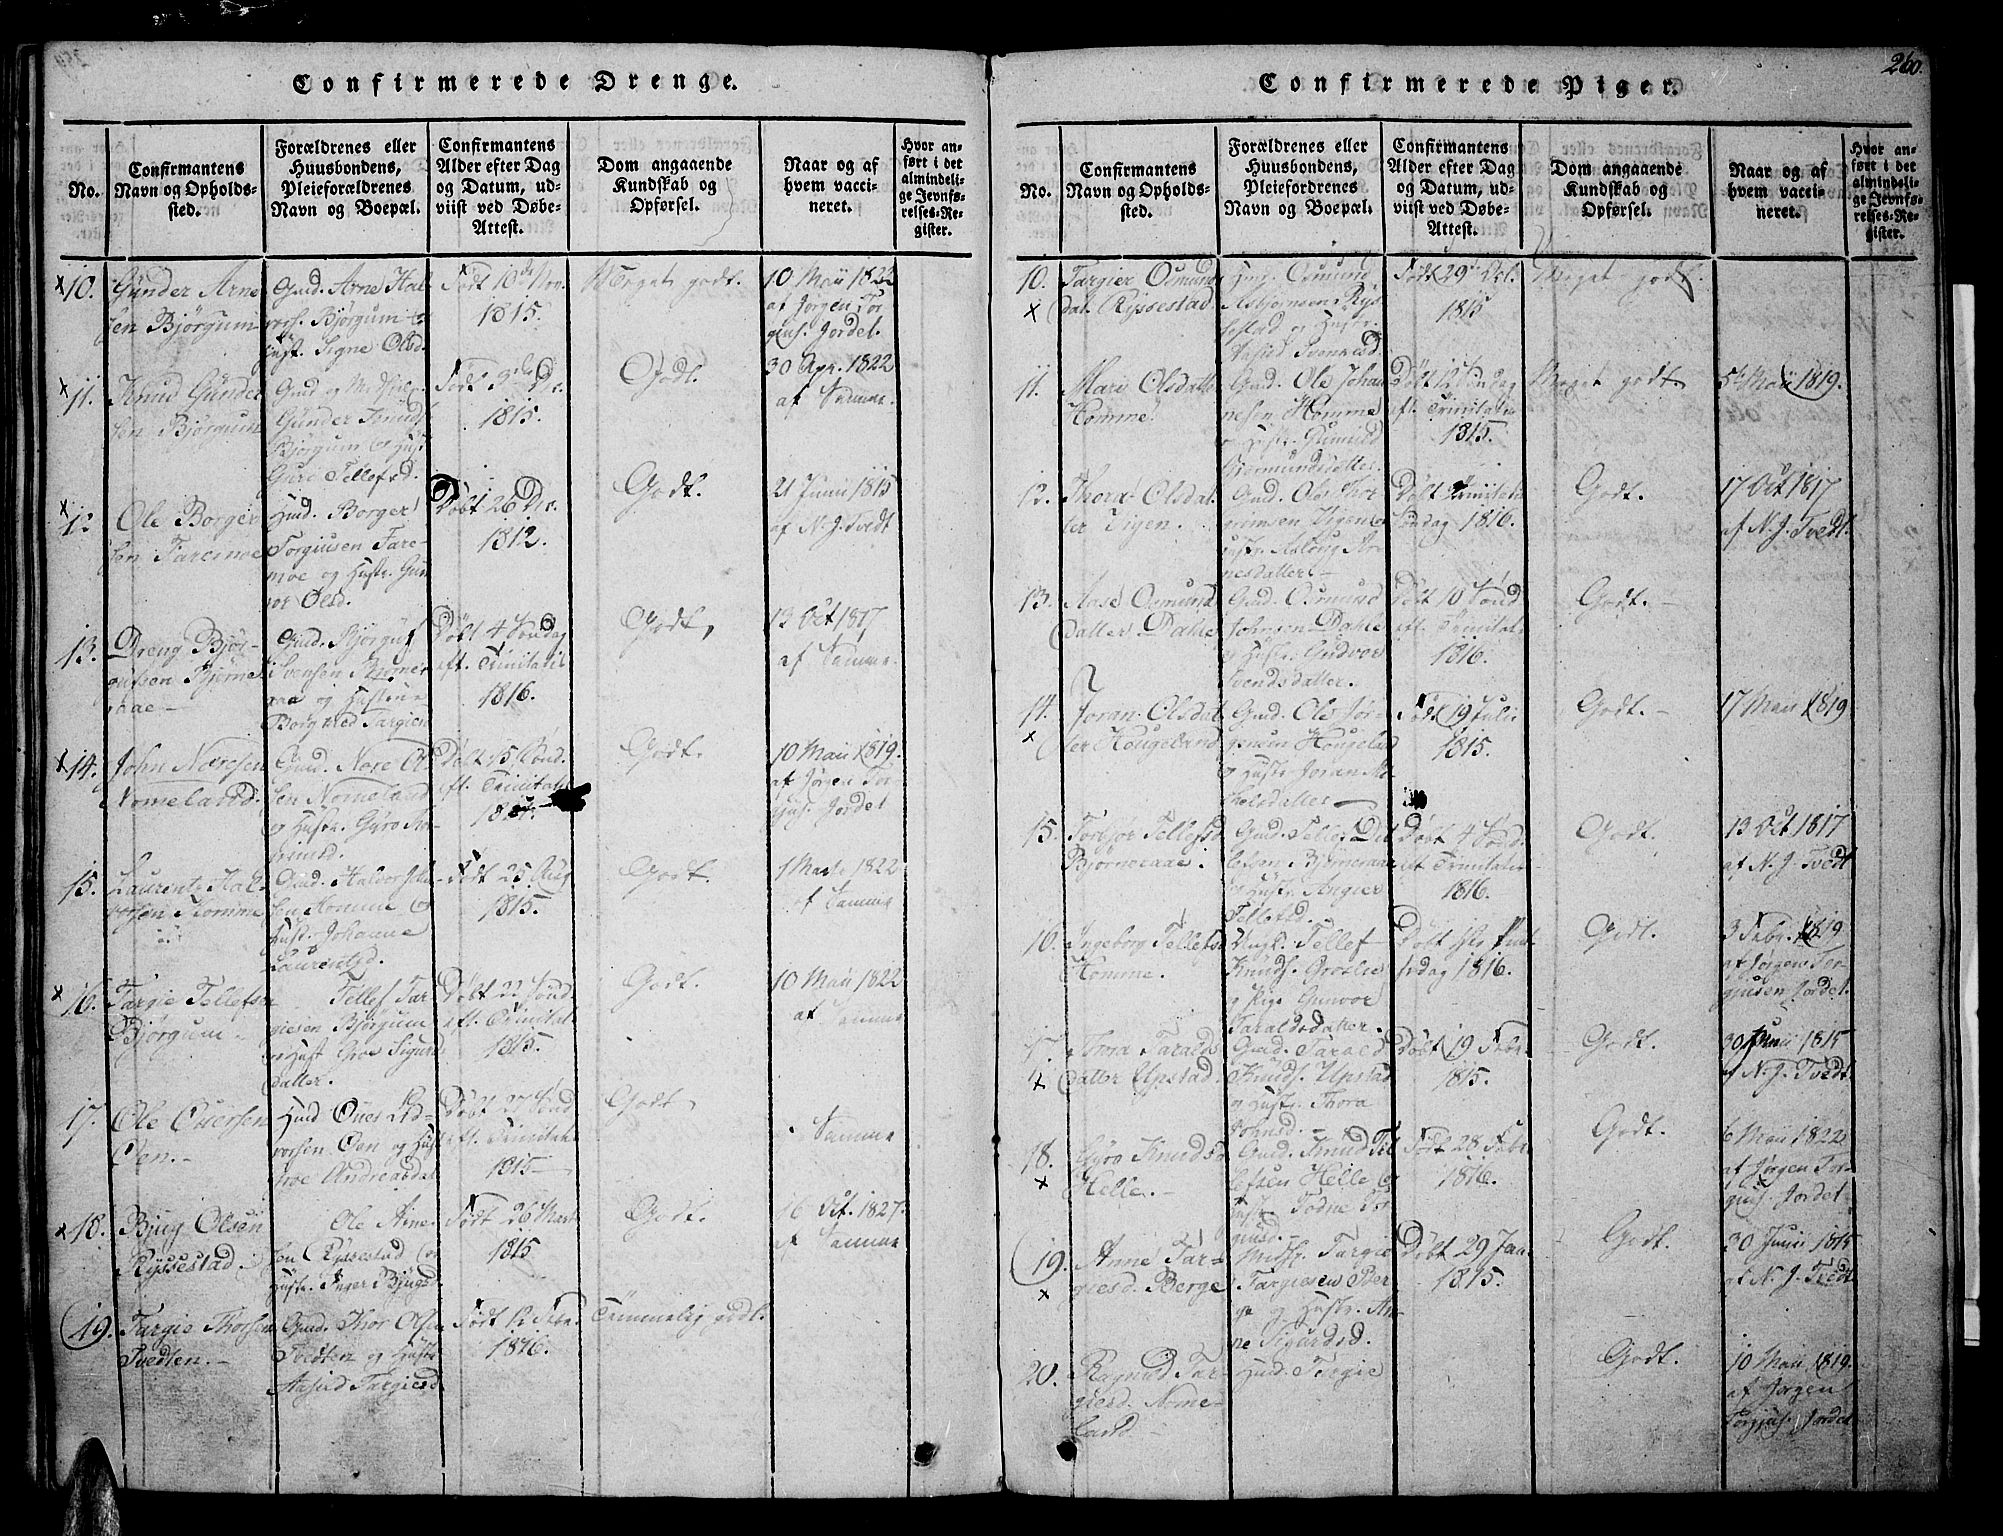 260.
Confirmerede Drenge.
No.
Confirmantens
Navn og Opholds-
sted.
Forældrenes eller
Huusbondens,
Pleieforældrenes
Navn og Boepæl.
Confirmantens
Alder efter Dag
og Datum, ud-
viist ved Døbe-
Attest.
Dom angaaende
Kundskab og
Opførsel.
Naar og af
hvem vacci-
neret.
Hvor an-
ført i det
almindeli-
ge Jevnfø-
relses-Re-
gister.
x10.
Gunder Arne
sen Bjørgum
Gmd. Arne Hal
vors. Bjørgum
Hust. Signe Olsd.
Født 10de Nov.
1815.
Meget godt.
10 Maii 1822
af Jørgen Tor
gius. Jordet
x11.
Knud Gunder
sen Bjørgum
Gunder Knuds
Bjørgum og Hust
Guro Tellefsd.
1815.
Godt.
30 Apr. 1822
af Samme.
x12
Ole Borger
sen Faremoe
Huusd. Borger
Torgiusen Fare-
moe og Hustr. Gun
vor Olsd.
Døbt 26 Dec.
1812.
Godt.
21 Junii 1815
af N. J. Tvedt
13.
Dreng Bjør-
gufsen Bjørne
raae -
Gmd. Bjørguf
Svensen Bjørne
raa og Hustrue
Borghild Targiesd
Døbt 4 Søndag
eft. Trinitatis
1816.
Godt,
13 Oct 1817
af Samme.
x14.
John Noresen
Nomeland.
Gmd. Nore O
sen Nomeland
og Hustr. Gyro
Døbt 15 Sønd.
eft. Trinitatis
Godt.
10 Maii 1819.
af Jørgen Tor
gius. Jordet
15.
Laurents Hal-
vorsen Homme
Gmd. Halvor
sen Homme og
Hust. Johanne
Laurentsd.
Født 25 Aug
1815.
Godt.
1 Marts 1822
af Samme
x 16.
Targie Tellefsen
Bjørgum -
Tellef Tar
giesen Bjørgum
og Hust Groe Sigurd
datter.
Døbt 22 Sønd.
eft. Trinitat.
1815.
Godt.
10 Maii 1822
af Samme
17.
Ole Ouersen
Oen. -
vorsen Oen og Hust
Groe Andreasdat
Døbt 27 Sønd
eft. Trinitatis
1815 -
Godt
Samme
x18.
Bjug Olsen
Ryssestad.
Ole Arne
sen Ryssestad og
Hustr. Inger Bjugsd
Født 26 Marts
1815.
Godt.
16 Oct. 1827.
af Samme
19.
Targie Thorsen
Tvedten. -
Gmd. Thor Olsen
Tvedten og Hustr
Aasild Targiesd
Født 12 Febr.
1816.
Temmelig godt.
Confirmerede Piger.
No.
Confirmantens
Navn og Opholds-
sted.
Forældrenes eller
Huusbondens,
Pleiefordrenes
Navn og Boepæl.
Confirmantens
Alder efter Dag
og Datum, ud-
viist ved Døbe-
Attest.
Dom angaaende
Kundskab og
Opførsel.
Naar og af
hvem vacci-
neret.
Hvor an-
ført i det
almindeli-
ge Jevnfø-
relses-Re-
gister.
10.
x
Targier Osmunds
dat. Ryssestad
Osmund
Asbjørnsen Rys
sestad og Hustr.
Født 29
1815
Meget godt.
11.
Mari Olsdatter
Homme.
Gmd. Ole Johan
nesen Homme
og Hustr. Gunnild
Døbt 12 Søndag
eft. Trinitatis
1815.
Meget godt
5te Maii 1819.
12.
Thora Olsdat
ter Vigen.
Gmd. Ole Thor
grimsen Vigen og
Hustr. Aslaug Ar
nesdatter -
Døbt Trinitatis
Søndag 1816.
Godt.
17 Oct 1817
af N. J. Tvedt.
13.
Aase Osmunds
datter Dahle
Gmd. Osmund
Johnsen Dahle
og Hustr. Gudvor
Svendsdatter.
Døbt 10 Sønd
eft. Trinitatis
1816.
Godt. -
14.
x
Joran Olsdat
ter Hougeland
Gmd. Ole Jør-
gensen Hougeland
og Hustr. Joran
Født 19 Julii
1815.
Godt. -
17 Maii 1819
15.
Torbjør Tellefsd.
Bjørneraae.
Bjørneraae
og Hustr. Angier
Tellefsd.
Døbt 4 Sønd.
eft Trinitatis
1816.
Godt.
13 Oct 1817
af N. J. Tvedt
16.
Ingeborg Tellefsd
Homme.
Ungk. Tellef
Knuds. Groslie
og Pige Gunvor
Taraldsdatter.
Døbt
1816.
Godt.
3 Febr. 1819
af Jørgen Tor
giusen Jordet.
17.
x
Taralds
datter Upstad.
Gmd. Tarald
Knuds. Upstad
og Hustr. Thora
Johnsd. -
Døbt 19 Febr.
1815.
Godt.
30 Junii 1815
af N. J. Tvedt
18.
x
Gyro Knudsd
Helle. -
Gmd. Knud Tel
lefsen Helle og
Hustr. Todne Tor
giusd.
Født 28 Febr
1816.
Godt.
6 Maii 1822
af Jørgen Tor-
gius. Jordet
19.
x
Anne Tar-
giesd. Berge
Targie
Targiesen Ber
ge og Hustr. An-
ne Sigurdsd.
Døbt 29 Jan
1815.
Godt.
30 Junii 1815
af N. J. Tvedt
20.
Ragnild Tar-
giesd. Nome-
land -
Huusd. Targie
Godt.
10 Maii 1819.
af Jørgen
Torgius. Jordet